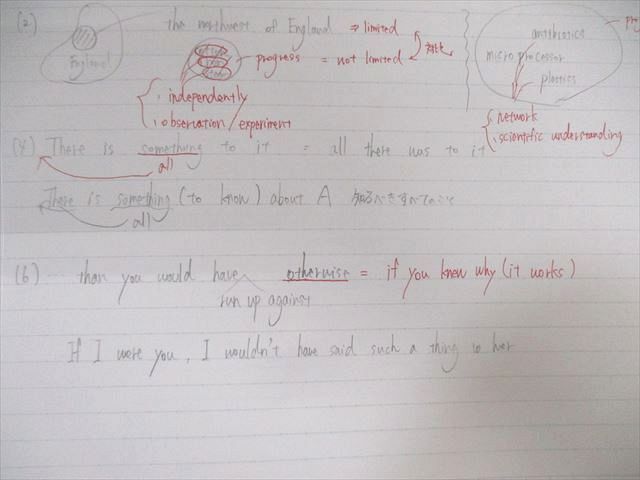 (2) the northwest of England ⇒ limited
England
progress = not limited
対比
· independently
· observation / experiment
antibiotics
micro processor
plastics
· network
· scientific understanding
(4) There is something to it = all there was to it
all
There is something (to know) about A 知るべきすべてのこと
all
(6) ... than you would have otherwise = if you knew why (it works)
run up against
If I were you, I wouldn't have said such a thing to her